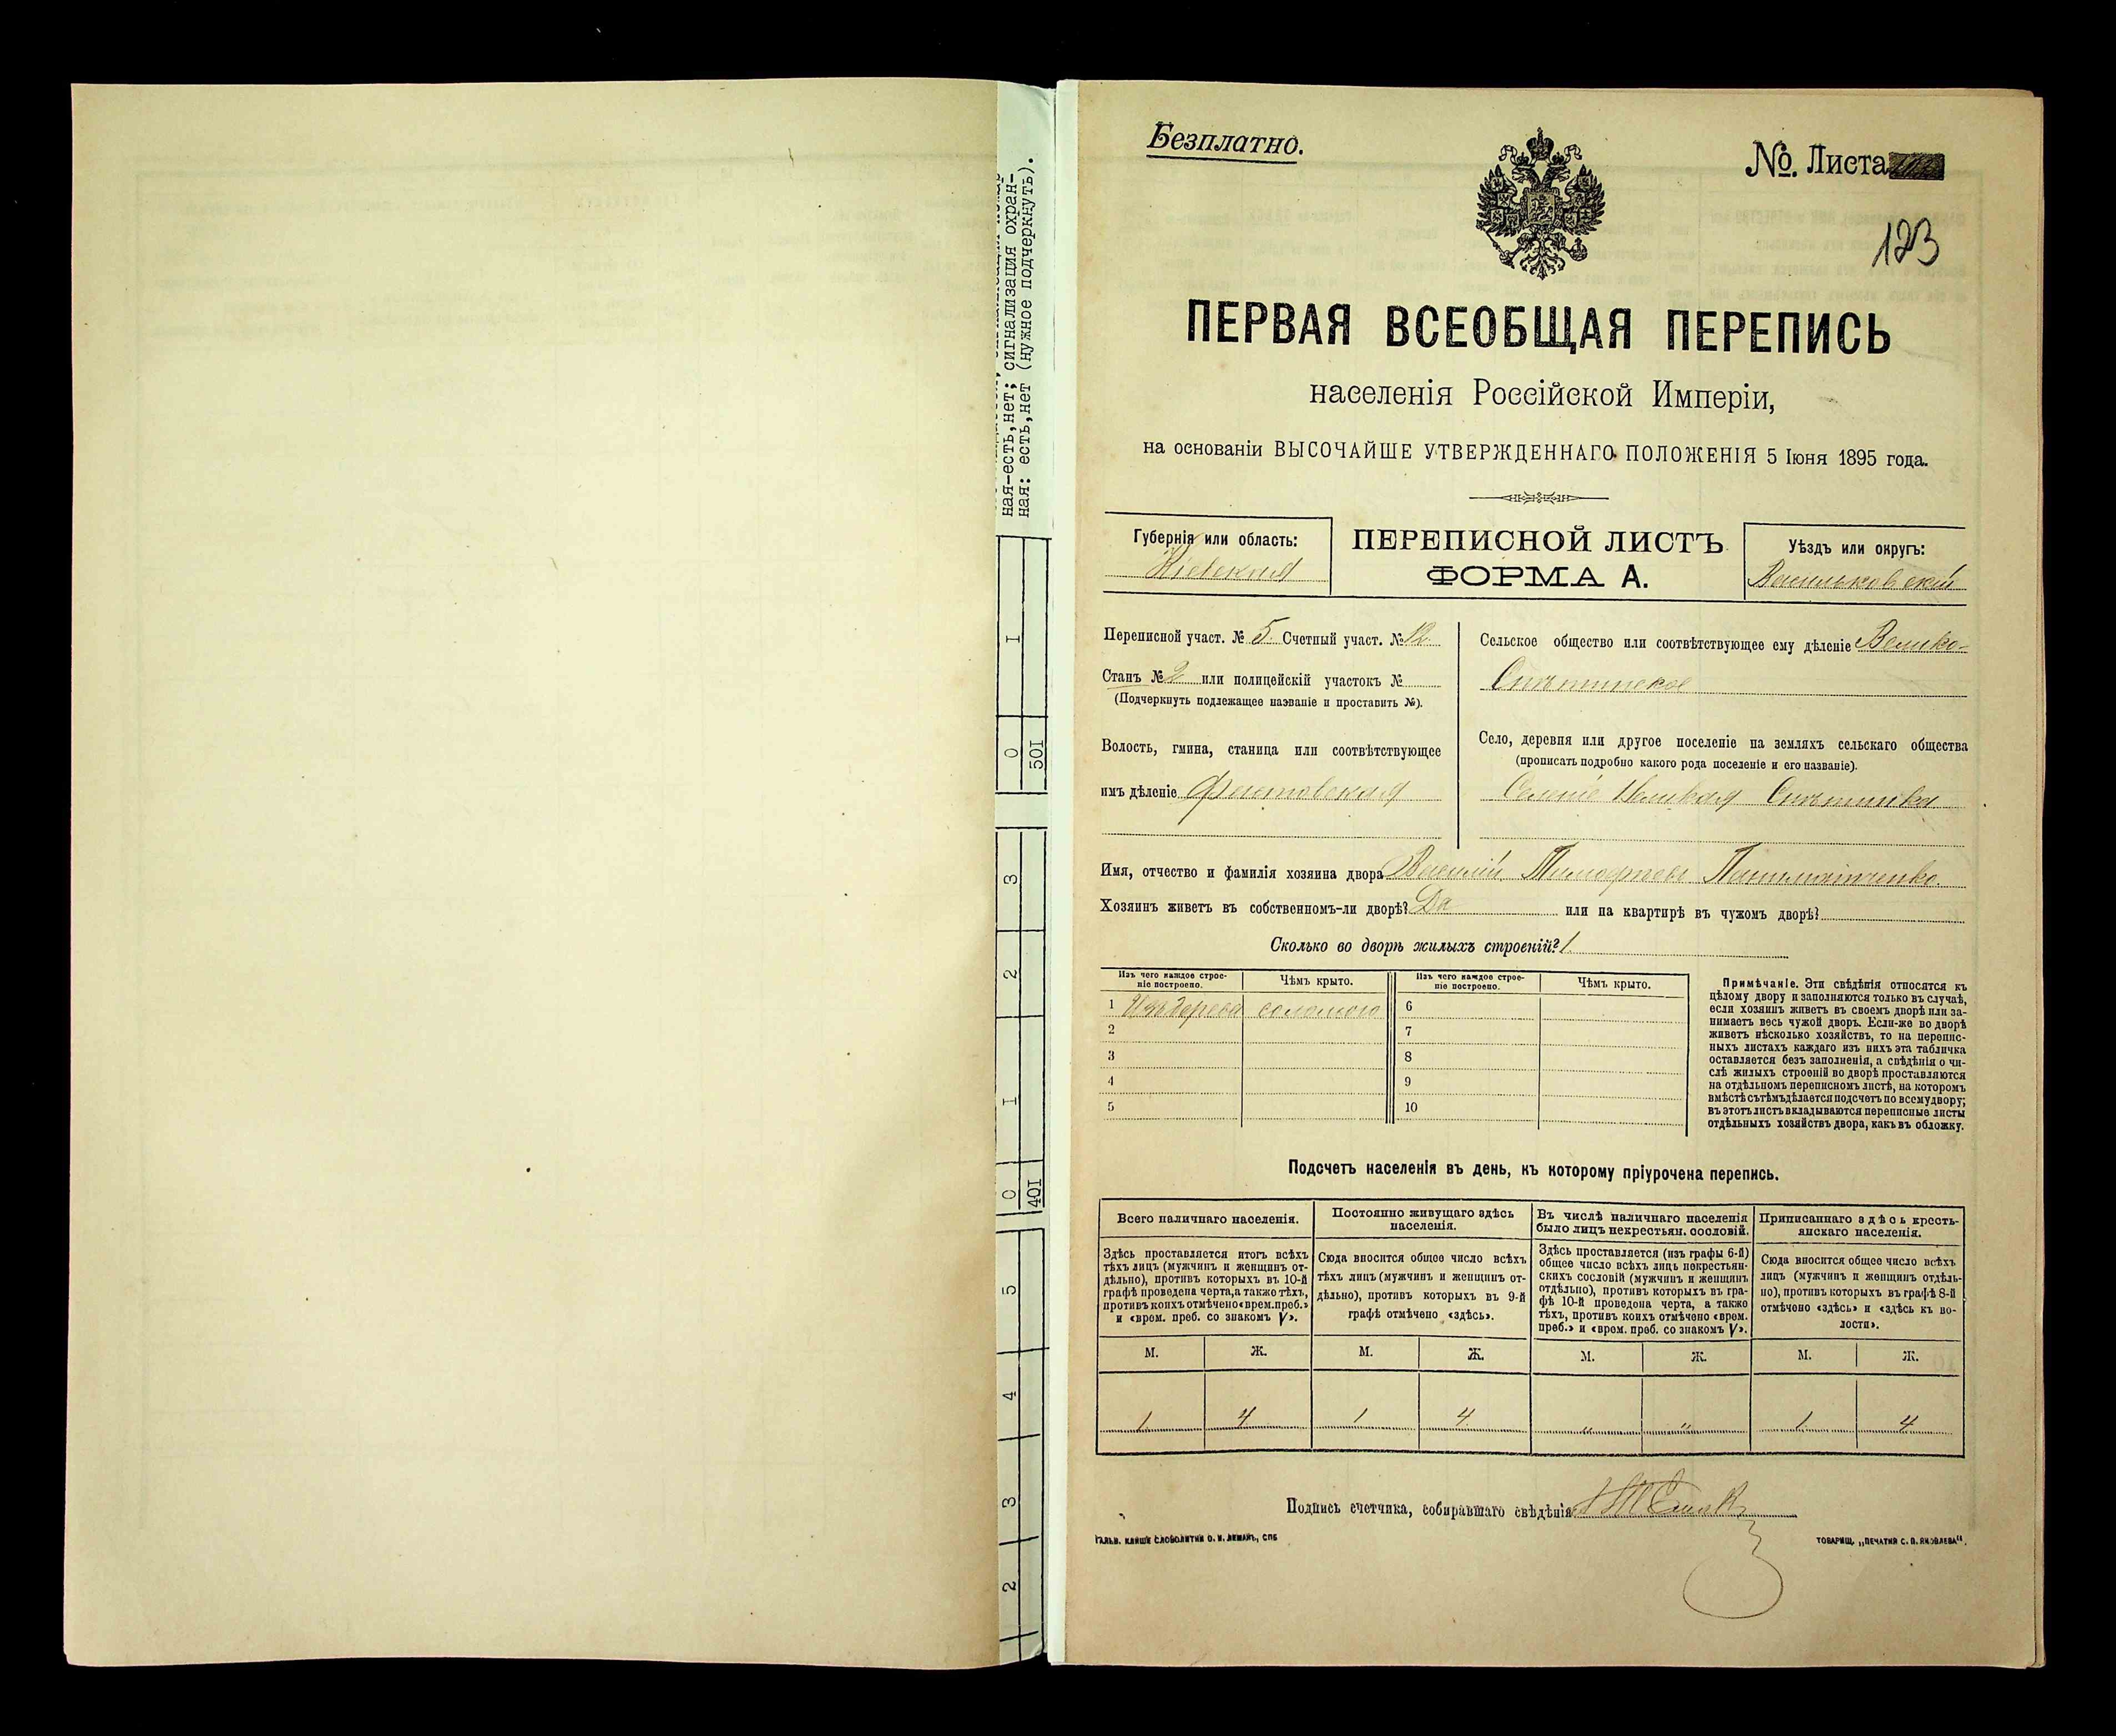 ная-есть,нет; сигнализация охран-
ная: есть,нет (нужное подчеркнуть).
I
0
50I
3
2
I
0
40I
5
4
3
2
Безплатно.
№. Листа
123
ПЕРВАЯ ВСЕОБЩАЯ ПЕРЕПИСЬ
населенія Россійской Имперіи,
на основаніи ВЫСОЧАЙШЕ УТВЕРЖДЕННАГО ПОЛОЖЕНІЯ 5 Іюня 1895 года.
Губернія или область:
Кіевская
ПЕРЕПИСНОЙ ЛИСТЪ
ФОРМА А.
Уѣздъ или округъ:
Васильковскій
Переписной участ. № 5. Счетный участ. № 12.
Станъ № 2 или полицейскій участокъ №
(Подчеркнуть подлежащее названіе и проставить №).
Волость, гмина, станица или соотвѣтствующее
имъ дѣленіе Фастовская
Сельское общество или соотвѣтствующее ему дѣленіе Велико-
Снѣтинское
Село, деревня или другое поселеніе на земляхъ сельскаго общества
(прописать подробно какого рода поселеніе и его названіе).
Селеніе Великая Снѣтинка
Имя, отчество и фамилія хозяина двора Василій Тимофтеев
Хозяинъ живетъ въ собственномъ-ли дворѣ? Да или на квартирѣ въ чужомъ дворѣ?
Сколько во дворѣ жилыхъ строеній? 1.
Изъ чего каждое строе-
ніе построено.
Чѣмъ крыто.
Изъ чего каждое строе-
ніе построено.
Чѣмъ крыто.
1 Изъ дерева соломою 6
2 7
3 8
4 9
5 10
Примѣчаніе. Эти свѣдѣнія относятся къ
цѣлому двору и заполняются только въ случаѣ,
если хозяинъ живетъ въ своемъ дворѣ или за-
нимаетъ весь чужой дворъ. Если-же во дворѣ
живетъ нѣсколько хозяйствъ, то на перепис-
ныхъ листахъ каждаго изъ нихъ эта табличка
оставляется безъ заполненія, а свѣдѣнія о чи-
слѣ жилыхъ строеній во дворѣ проставляются
на отдѣльномъ переписномъ листѣ, на которомъ
вмѣстѣ съ тѣмъ дѣлается подсчетъ по всему двору;
въ этотъ листъ вкладываются переписные листы
отдѣльныхъ хозяйствъ двора, какъ въ обложку.
Подсчетъ населенія въ день, къ которому пріурочена перепись.
Всего наличнаго населенія.
Здѣсь проставляется итогъ всѣхъ
тѣхъ лицъ (мужчинъ и женщинъ от-
дѣльно), противъ которыхъ въ 10-й
графѣ проведена черта, а также тѣхъ,
противъ коихъ отмѣчено «врем. преб.»
и «врем. преб. со знакомъ V».
Постоянно живущаго здѣсь
населенія.
Сюда вносится общее число всѣхъ
тѣхъ лицъ (мужчинъ и женщинъ от-
дѣльно), противъ которыхъ въ 9-й
графѣ отмѣчено «здѣсь».
Въ числѣ наличнаго населенія
было лицъ некрестьян. сословій.
Здѣсь проставляется (изъ графы 6-й)
общее число всѣхъ лицъ некрестьян-
скихъ сословій (мужчинъ и женщинъ
отдѣльно), противъ которыхъ въ гра-
фѣ 10-й проведена черта, а также
тѣхъ, противъ коихъ отмѣчено «врем.
преб.» и «врем. преб. со знакомъ V».
Приписаннаго здѣсь кресть-
янскаго населенія.
Сюда вносится общее число всѣхъ
лицъ (мужчинъ и женщинъ отдѣль-
но), противъ которыхъ въ графѣ 8-й
отмѣчено «здѣсь» и «здѣсь къ во-
лости».
М. Ж. М. Ж. М. Ж. М. Ж.
1 4 1 4 " " 1 4
Подпись счетчика, собиравшаго свѣдѣнія
ГАЛЬВ. КЛИШЕ СЛОВОЛИТНИ О. И. ЛЕМАНЪ, СПБ
ТОВАРИЩ. „ПЕЧАТНЯ С. П. ЯКОВЛЕВА“.